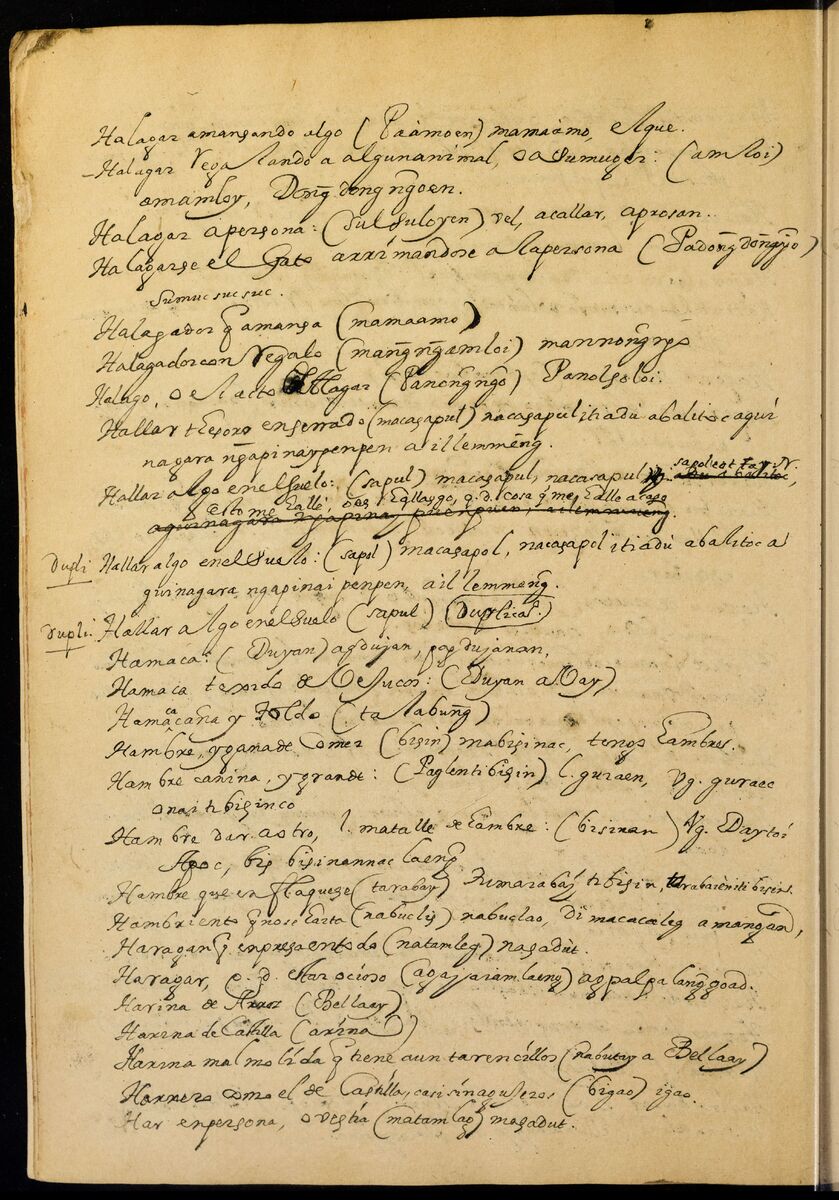 Halagar amansando algo (Paàmoen) mamaàmo, el que.
Halagar regalando a algun animal, o a su muger: (amloi)
amamloy, Dong̃dong ng̃oen.
Halagar a persona: (sulsuloyen) vel, acallar, aprosan.
Halagarse el Gato arrimandose a la persona (Padong̃dong̃ño)
sumucsucsuc.
Halagador q̃ amansa (mamaamo)
Halagador con regalo (mang̃ng̃amloi)
Halago, o el acto (Panong̃ng̃o) Panolsoloi.
Hallar thesoro enserrado (macasapul) nacasapul iti adù a balitoc aqui
nagara ng̃apinay penpen a illemmeng̃.
Hallar algo en el suelo: (sapul) macasapul, nacasapul
esto me hallé, q.d. cosa q̃ me halle acaso
Dupli Hallar algo en el suelo: (sapol) macasapol, nacasapol iti adù a balitoc a
quinagara ng̃apinai penpen, a illemmeng̃.
Dupli. Hallar algo en el suelo (sapul) (Duplicas.)
Hamaca: (Duyan) agdujan, pagdujanan,
Hamaca texida de Vejucos: (Duyan a Vay)
Hamaca caña y toldo (talabung̃)
Hambre, y gana de comer (bisin) mabisinac, tengo hambre.
Hambre canina, y grande: (Paglentibisin) l. guraen, Vg. guraec
onai ti bisinco
Hambre dar a otro, l. matalle de hambre: (bisinan) Vg. Daytoi
Apoc, bis bisinannac laeng̃
Hambre que enflaquese (tarabay) Rumarabaj ti bisin, tarabaieniti bisin.
Hambriento q̃ no se harta (nabuclis) nabuclao, di macacaleg a mang̃an,
Haragan q̃ en presaentodo (natamleg) nasadut.
Haragar, q.d. estar ocioso (agajjaiam laeng) agpalpalang̃goad.
Harina de Arroz (Bellaay)
Harina de Castilla (arina)
Harina mal molida q̃ tiene aun tarencillos (nabutay a Bellaay)
Harnero como el de Castilla, casi sin agujeros (bigao) igao.
Har en persona, o vestia (matamlag̃) masadut.